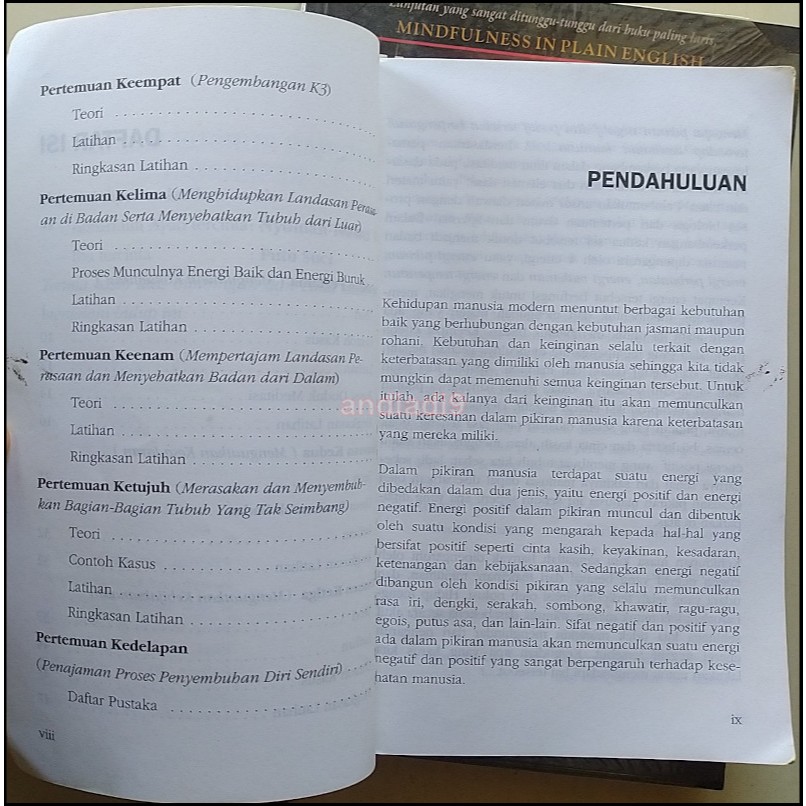 Lanjutan yang sangat ditunggu-tunggu dari buku paling laris,
MINDFULNESS IN PLAIN ENGLISH
Pertemuan Keempat (Pengembangan K3)
Teori
Latihan
Ringkasan Latihan
Pertemuan Kelima (Menghidupkan Landasan Perasa-
an di Badan Serta Menyehatkan Tubuh dari Luar)
Teori
Proses Munculnya Energi Baik dan Energi Buruk
Latihan
Ringkasan Latihan
Pertemuan Keenam (Mempertajam Landasan Pe-
rasaan dan Menyehatkan Badan dari Dalam)
Teori
Latihan
Ringkasan Latihan
Pertemuan Ketujuh (Merasakan dan Menyembuh-
kan Bagian-Bagian Tubuh Yang Tak Seimbang)
Teori
Contoh Kasus
Latihan
Ringkasan Latihan
Pertemuan Kedelapan
(Penajaman Proses Penyembuhan Diri Sendiri)
Daftar Pustaka
viii
DAFTAR ISI
PENDAHULUAN
Kehidupan manusia modern menuntut berbagai kebutuhan
baik yang berhubungan dengan kebutuhan jasmani maupun
rohani. Kebutuhan dan keinginan selalu terkait dengan
keterbatasan yang dimiliki oleh manusia sehingga kita tidak
mungkin dapat memenuhi semua keinginan tersebut. Untuk
itulah, ada kalanya dari keinginan itu akan memunculkan
suatu keresahan dalam pikiran manusia karena keterbatasan
yang mereka miliki.
Dalam pikiran manusia terdapat suatu energi yang
dibedakan dalam dua jenis, yaitu energi positif dan energi
negatif. Energi positif dalam pikiran muncul dan dibentuk
oleh suatu kondisi yang mengarah kepada hal-hal yang
bersifat positif seperti cinta kasih, keyakinan, kesadaran,
ketenangan dan kebijaksanaan. Sedangkan energi negatif
dibangun oleh kondisi pikiran yang selalu memunculkan
rasa iri, dengki, serakah, sombong, khawatir, ragu-ragu,
egois, putus asa, dan lain-lain. Sifat negatif dan positif yang
ada dalam pikiran manusia akan memunculkan suatu energi
negatif dan positif yang sangat berpengaruh terhadap kese-
hatan manusia.
ix
andiadi9